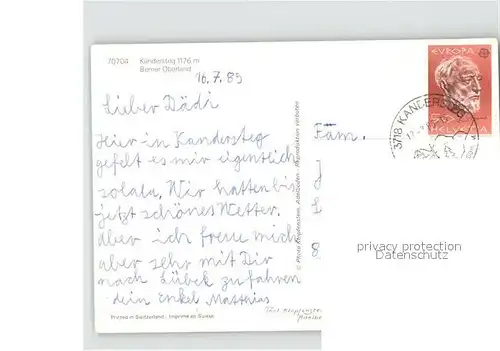 70704 Kandersteg 1176 m
Berner Oberland
16.7.85
EUROPA
HELVETIA
3718 KANDERSTEG
Lieber Dädi
Hier in Kandersteg
gefelt es mir eigentlich
solala. Wir hatten bis
jetzt schönes Wetter.
Aber ich freue mich
aber sehr mit Dir
nach Lübek zu fahren
dein Enkel Matthias
Fam.
8
© Photo Klopfenstein, Adelboden · Reproduktion verboten
Printed in Switzerland · Imprimé en Suisse
privacy protection
Datenschutz